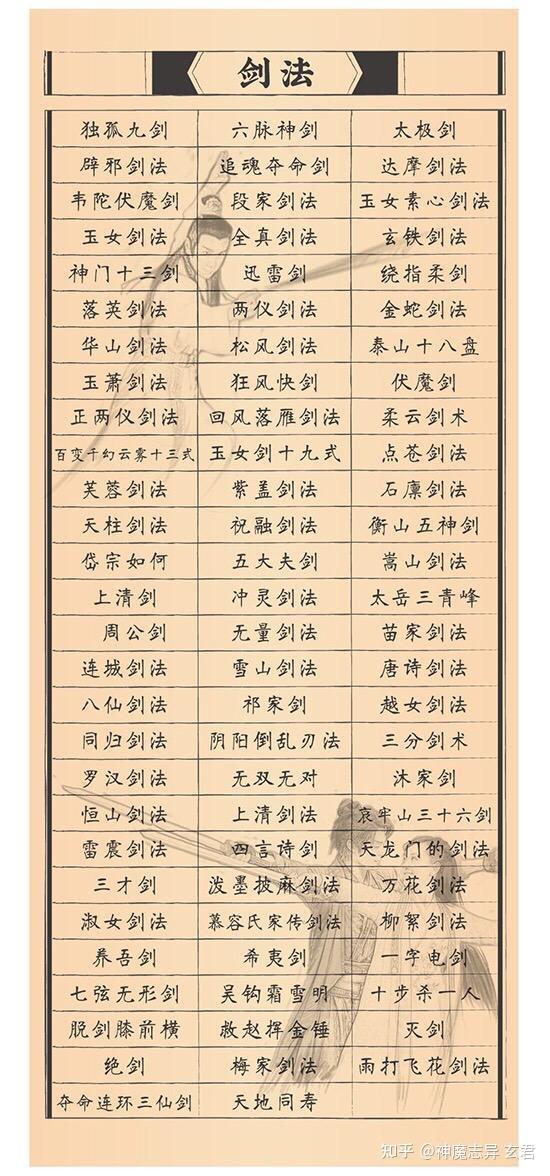 剑法
独孤九剑 六脉神剑 太极剑
辟邪剑法 追魂夺命剑 达摩剑法
韦陀伏魔剑 段家剑法 玉女素心剑法
玉女剑法 全真剑法 玄铁剑法
神门十三剑 迅雷剑 绕指柔剑
落英剑法 两仪剑法 金蛇剑法
华山剑法 松风剑法 泰山十八盘
玉箫剑法 狂风快剑 伏魔剑
正两仪剑法 回风落雁剑法 柔云剑术
百变千幻云雾十三式 玉女剑十九式 点苍剑法
芙蓉剑法 紫盖剑法 石廪剑法
天柱剑法 祝融剑法 衡山五神剑
岱宗如何 五大夫剑 嵩山剑法
上清剑 冲灵剑法 太岳三青峰
周公剑 无量剑法 苗家剑法
连城剑法 雪山剑法 唐诗剑法
八仙剑法 祁家剑 越女剑法
同归剑法 阴阳倒乱刃法 三分剑术
罗汉剑法 无双无对 沐家剑
恒山剑法 上清剑法 哀牢山三十六剑
雷震剑法 四言诗剑 天龙门的剑法
三才剑 泼墨披麻剑法 万花剑法
淑女剑法 慕容氏家传剑法 柳絮剑法
养吾剑 希夷剑 一字电剑
七弦无形剑 吴钩霜雪明 十步杀一人
脱剑膝前横 救赵挥金锤 灭剑
绝剑 梅家剑法 雨打飞花剑法
夺命连环三仙剑 天地同寿
知乎 @神魔志异 玄君